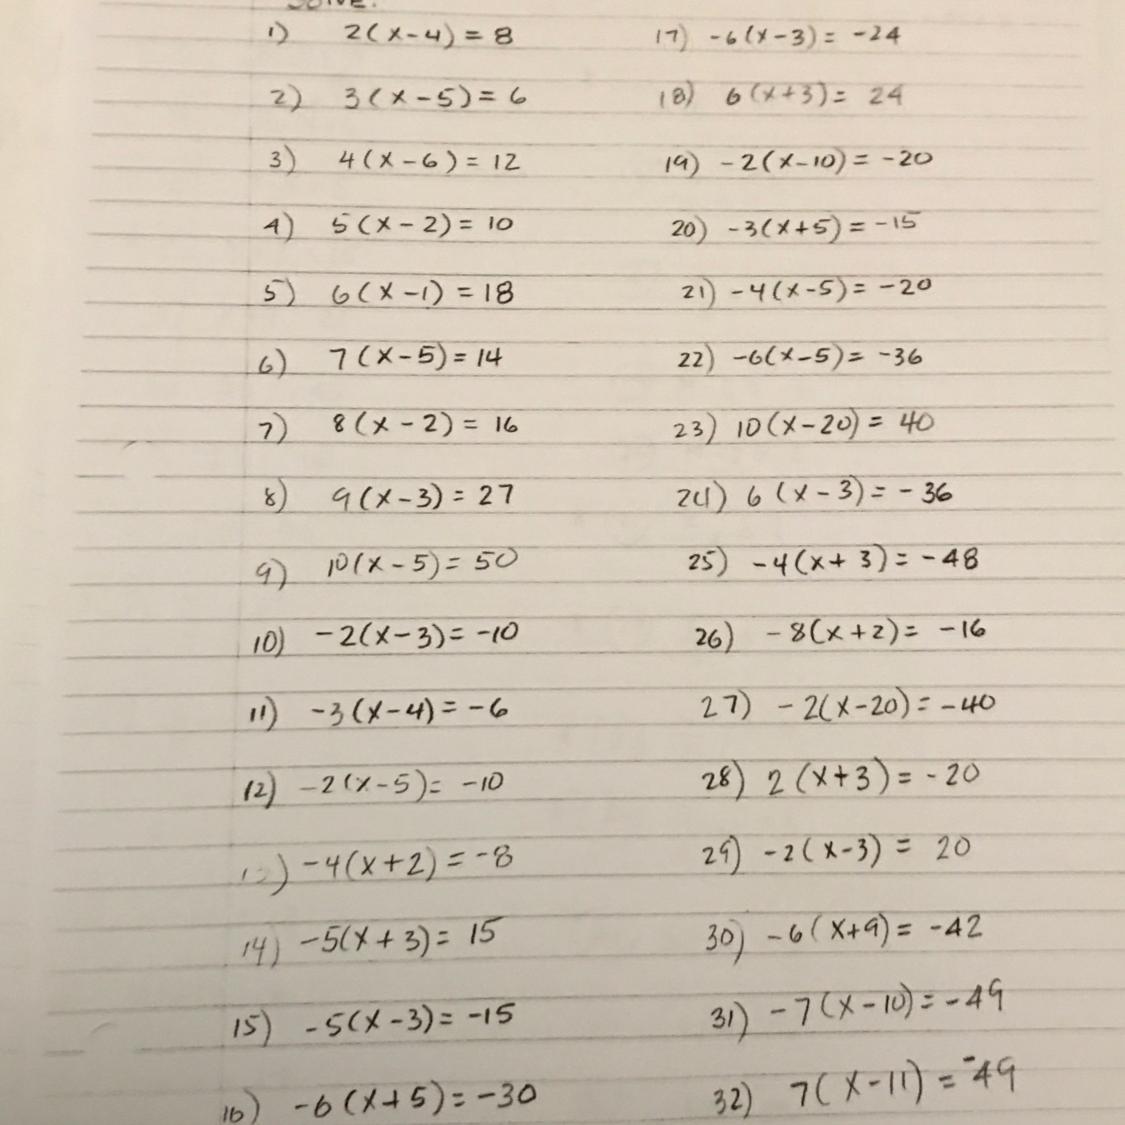 SOLVE:
1) 2(x-4) = 8
2) 3(x-5) = 6
3) 4(x-6) = 12
4) 5(x-2) = 10
5) 6(x-1) = 18
6) 7(x-5) = 14
7) 8(x-2) = 16
8) 9(x-3) = 27
9) 10(x-5) = 50
10) -2(x-3) = -10
11) -3(x-4) = -6
12) -2(x-5) = -10
13) -4(x+2) = -8
14) -5(x+3) = 15
15) -5(x-3) = -15
16) -6(x+5) = -30
17) -6(x-3) = -24
18) 6(x+3) = 24
19) -2(x-10) = -20
20) -3(x+5) = -15
21) -4(x-5) = -20
22) -6(x-5) = -36
23) 10(x-20) = 40
24) 6(x-3) = -36
25) -4(x+3) = -48
26) -8(x+2) = -16
27) -2(x-20) = -40
28) 2(x+3) = -20
29) -2(x-3) = 20
30) -6(x+9) = -42
31) -7(x-10) = -49
32) 7(x-11) = -49